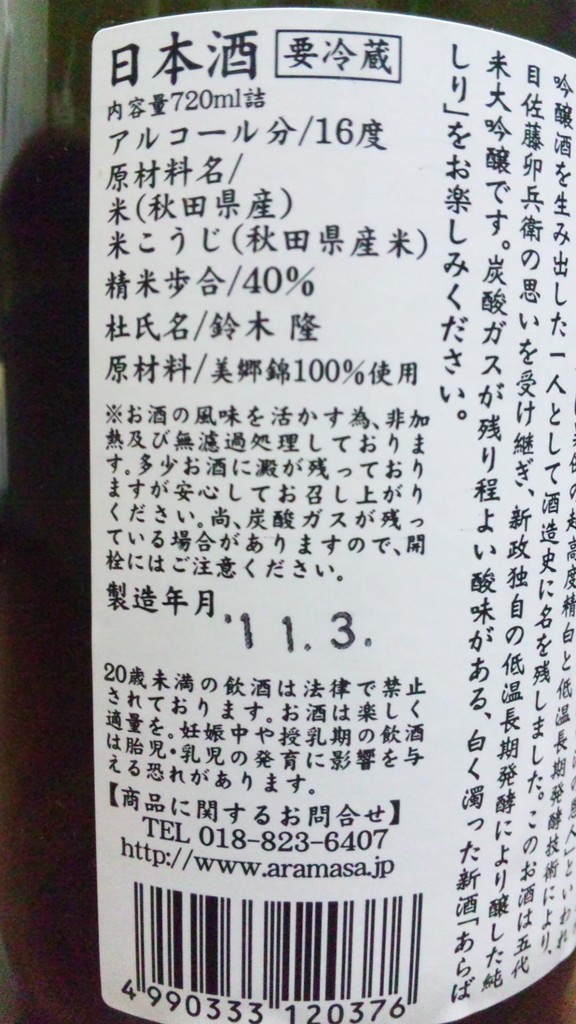 日本酒 要冷蔵
内容量720ml詰
アルコール分/16度
原材料名/
米(秋田県産)
米こうじ(秋田県産米)
精米歩合/40%
杜氏名/鈴木 隆
原材料/美郷錦100%使用
※お酒の風味を活かす為、非加
熱及び無濾過処理しておりま
す。多少お酒に澱が残っており
ますが安心してお召し上がり
ください。尚、炭酸ガスが残っ
ている場合がありますので、開
栓にはご注意ください。
製造年月 '11.3.
20歳未満の飲酒は法律で禁止
されております。お酒は楽しく
適量を。妊娠中や授乳期の飲酒
は胎児・乳児の発育に影響を与
える恐れがあります。
【商品に関するお問合せ】
TEL 018-823-6407
http://www.aramasa.jp
4 990333 120376
の超高度精白と低温長期発酵技術により、
吟醸酒を生み出した一人として酒造史に名を残しました。このお酒は五代
目佐藤卯兵衛の思いを受け継ぎ、新政独自の低温長期発酵により醸した純
米大吟醸です。炭酸ガスが残り程よい酸味がある、白く濁った新酒「あらば
しり」をお楽しみください。